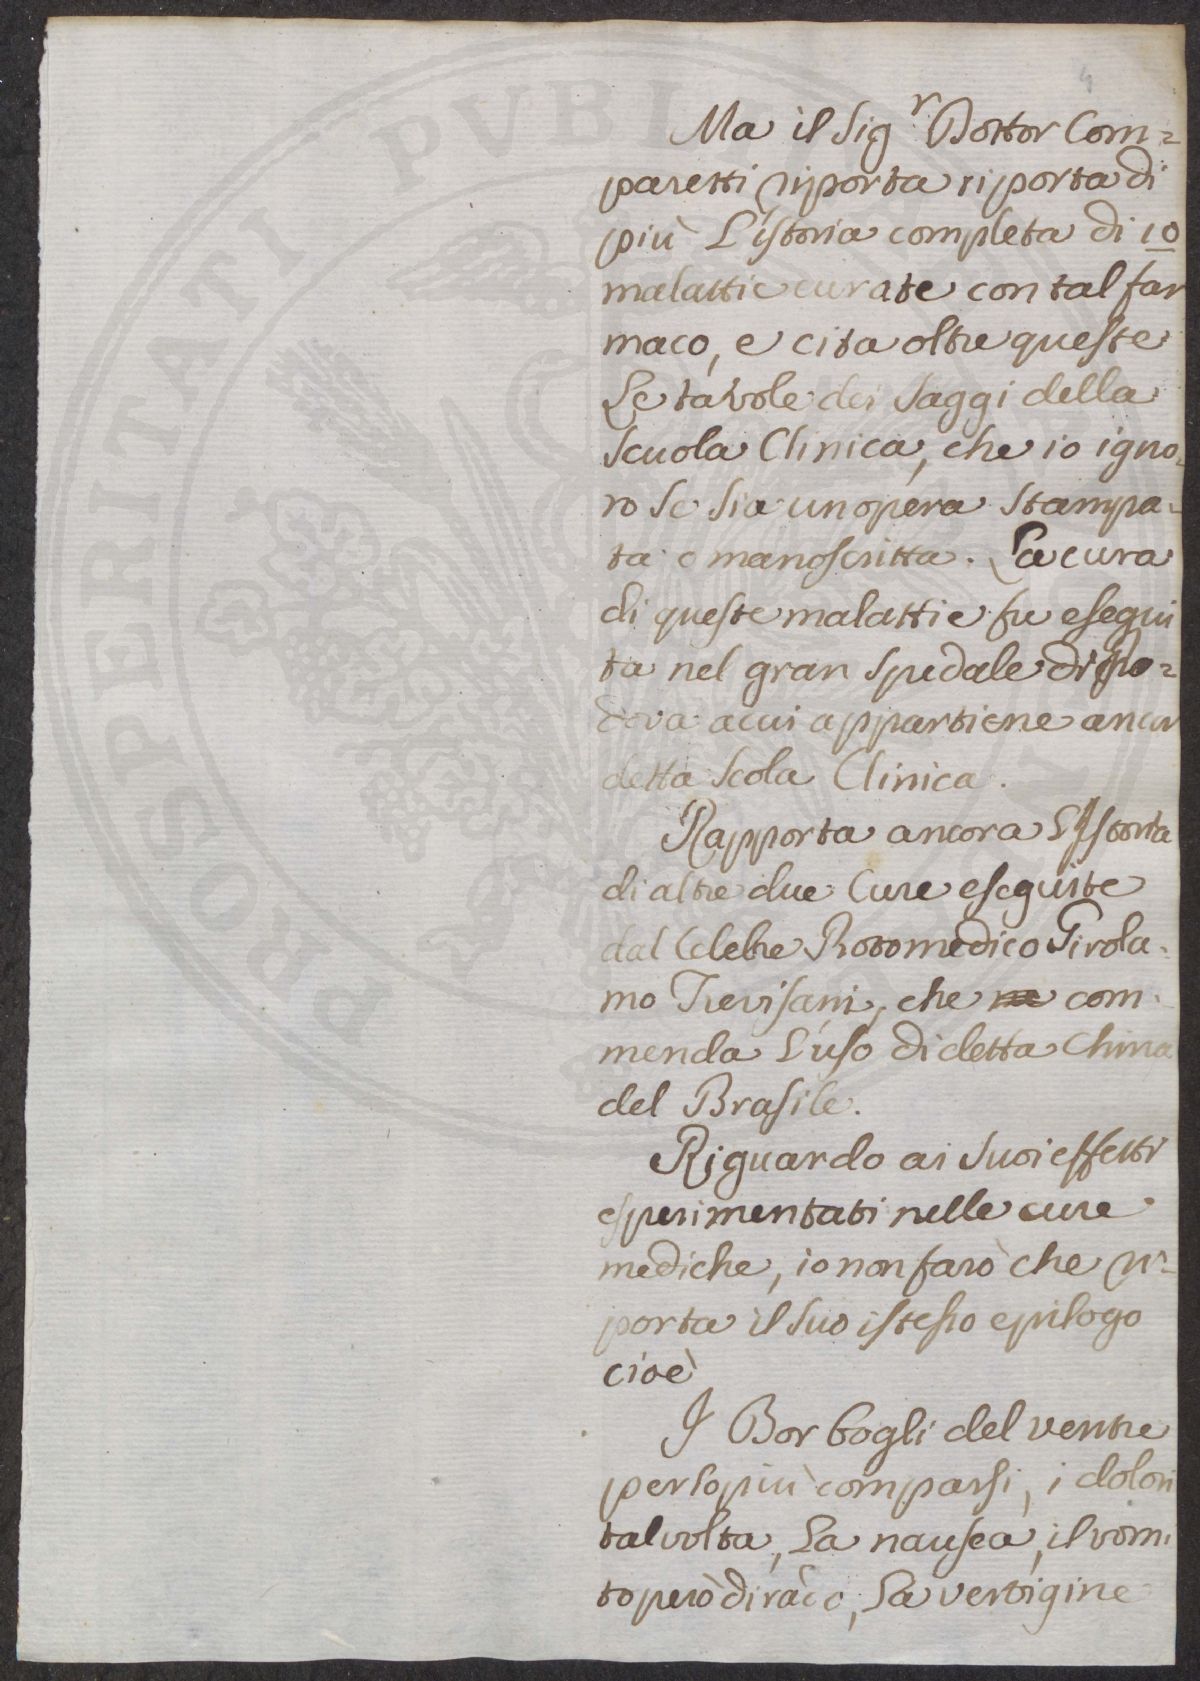 4
Ma il Sig.r Dottor Com=
paretti riporta riporta di
più L'istoria completa di 10
malattie curate con tal far
maco, e cita oltre queste
Le tavole dei Saggi della
Scuola Clinica, che io igno-
ro se sia un opera stampa-
ta o manoscritta. La cura
di queste malattie fu esegui
ta nel gran Spedale di Pa=
dova a cui appartiene ancor
detta Scola Clinica.
Rapporta ancora L'Istoria
di altre due Cure eseguite
dal Celebre Protomedico Girola-
mo Trevisani, che com-
menda L'uso di detta China
del Brasile.
Riguardo ai Suoi effetti
esperimentati nelle cure
mediche, io non farò che ri=
porta il Suo istesso epilogo
cioè
I Borbogli del ventre
per lo più comparsi, i dolori
talvolta, La nausea, il vomi
to però di rado, La vertigine
PROSPERITATI PVBLICAE